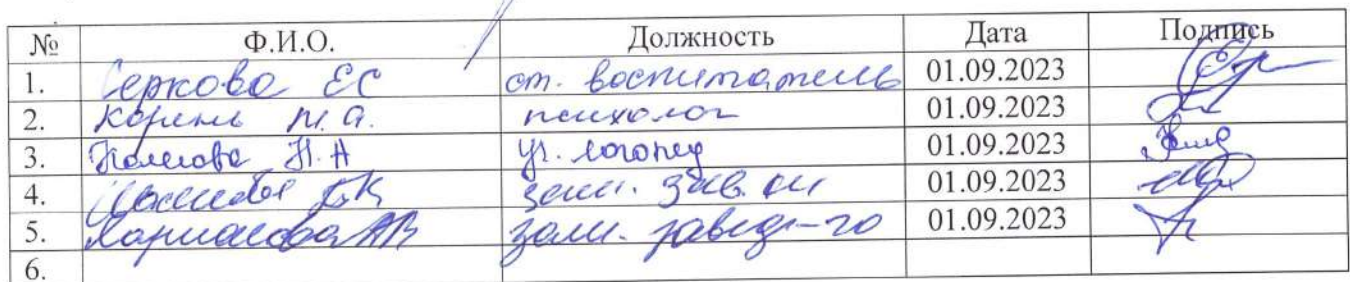 № Ф.И.О. Должность Дата Подпись
1. Серкова ЕС ст. воспитатель 01.09.2023
2. Корень М.А. психолог 01.09.2023
3. Н.Н уч. логопед 01.09.2023
4. зам. зав. 01.09.2023
5. зам. завед-го 01.09.2023
6.